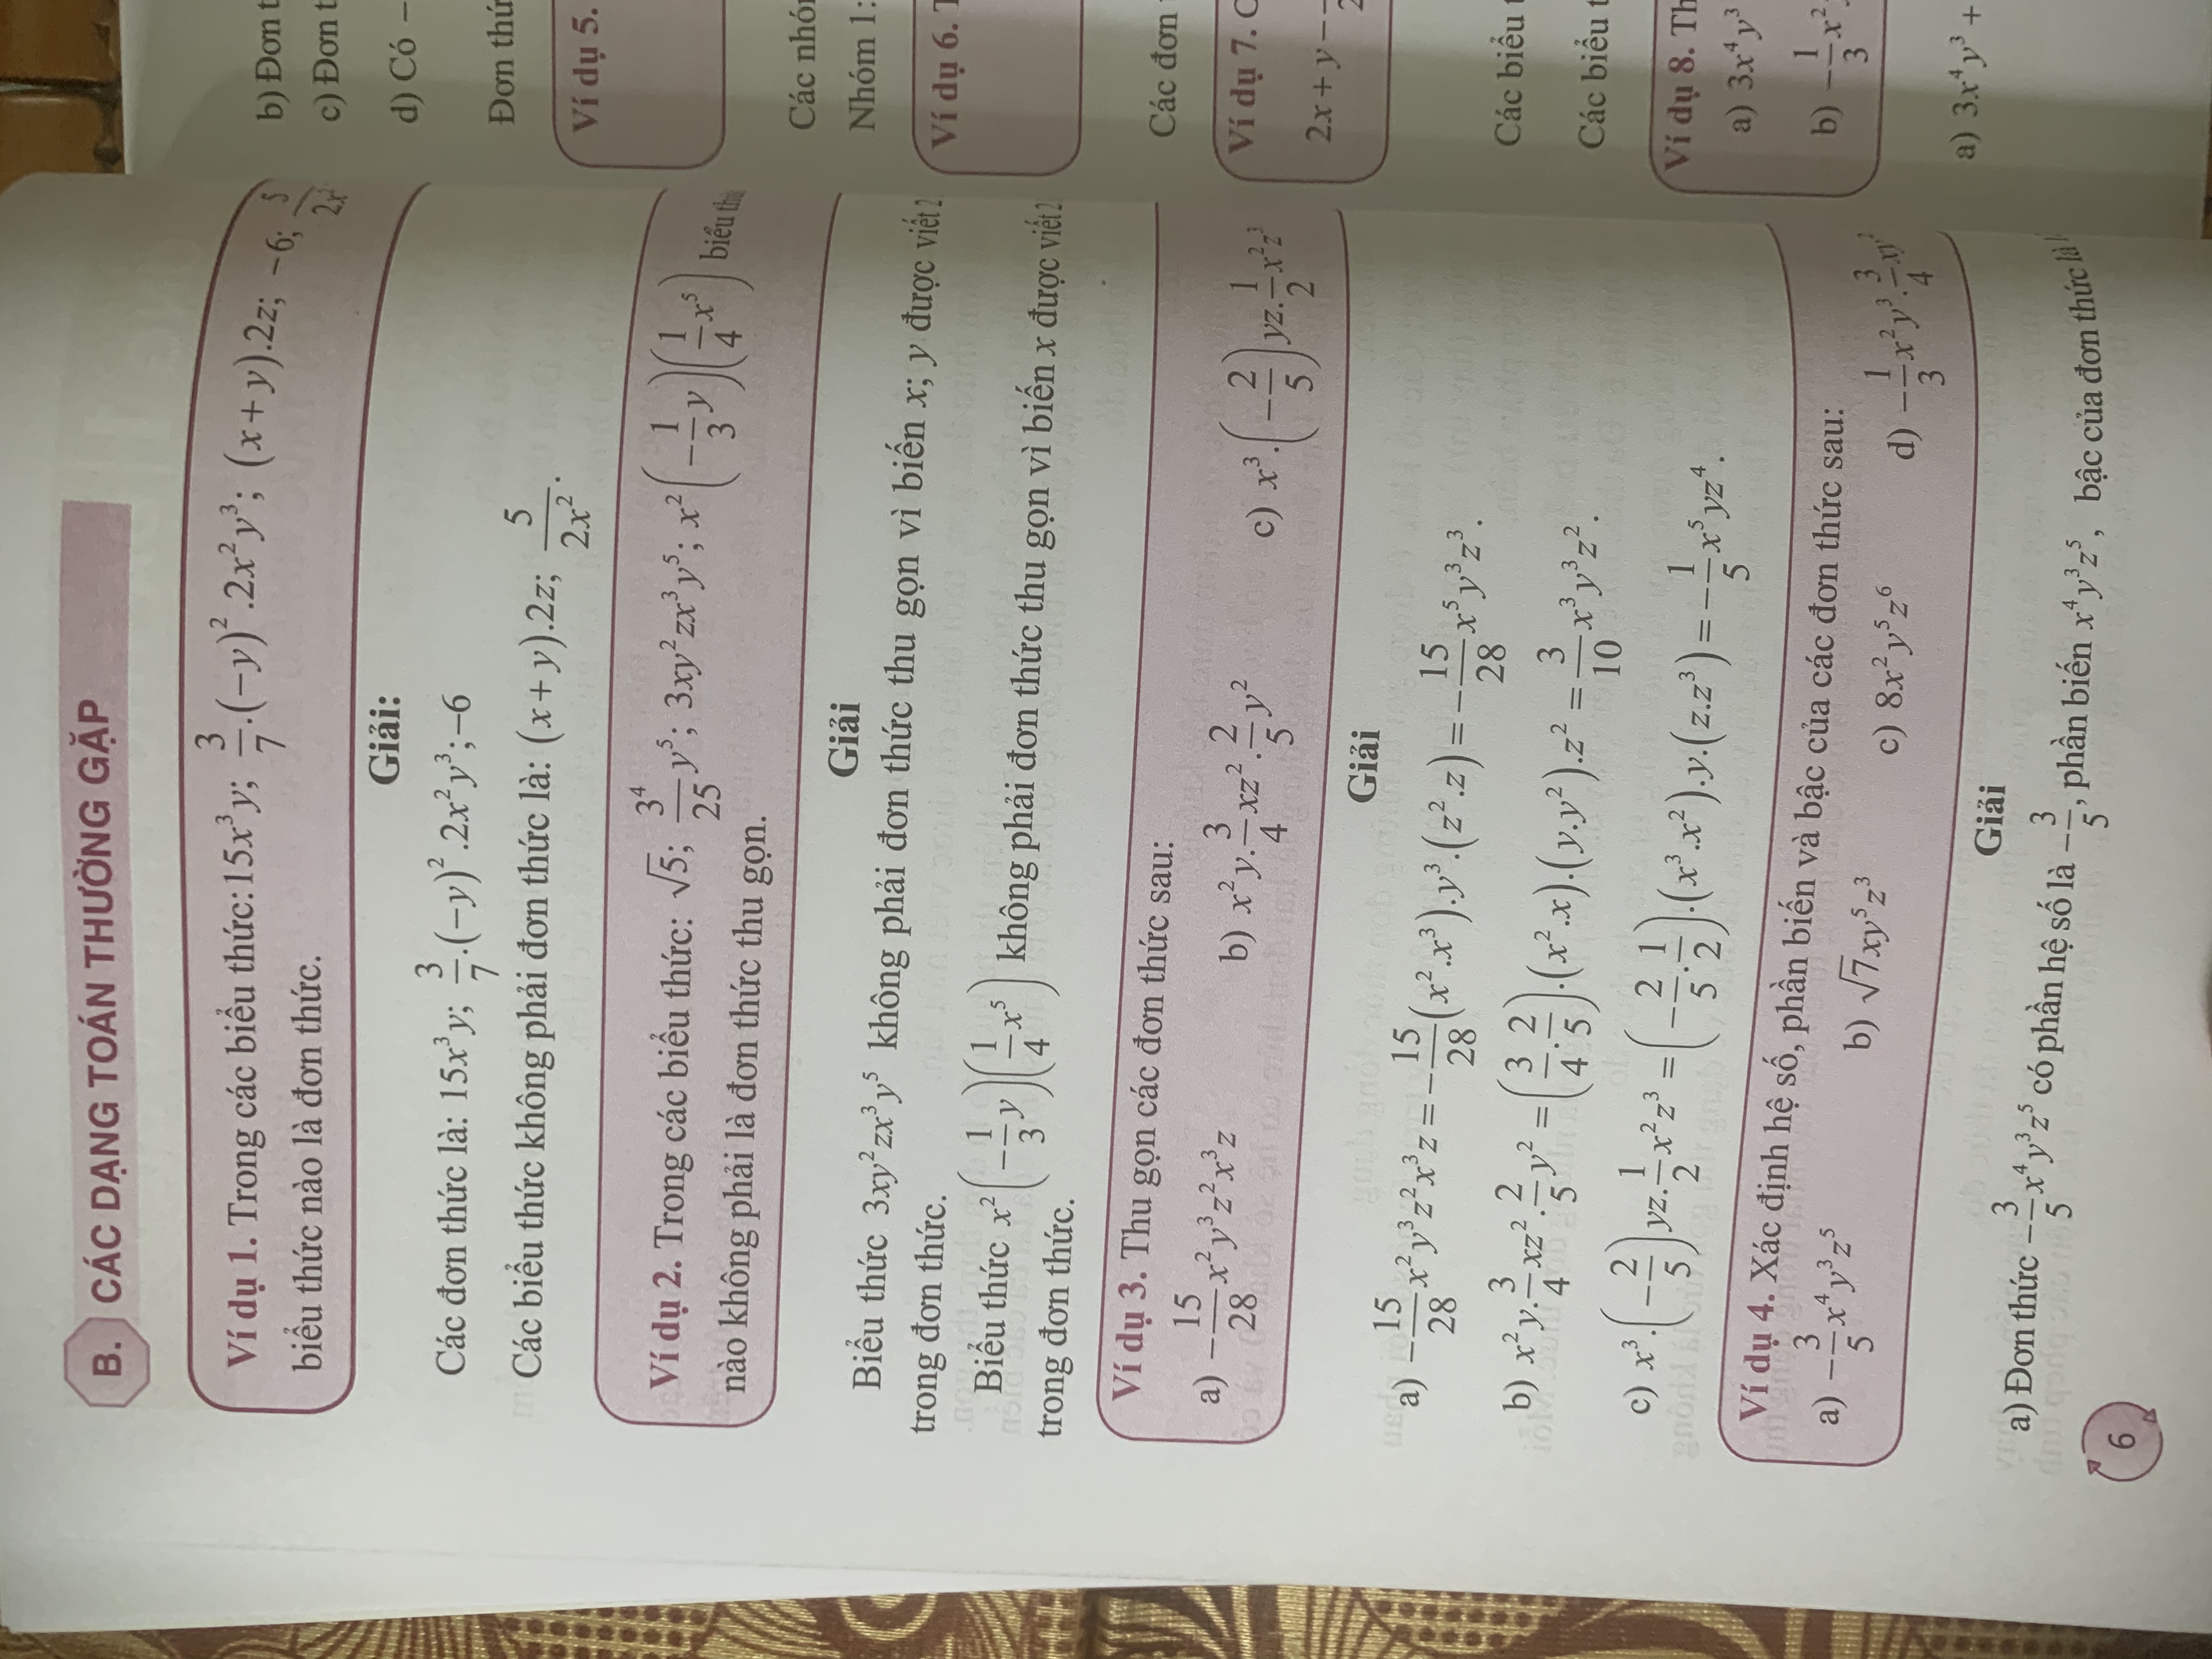 B. CÁC DẠNG TOÁN THƯỜNG GẶP
Ví dụ 1. Trong các biểu thức: 15x³y; 3/7.(−y)².2x²y³; (x+y).2z; −6; 5/2x²
biểu thức nào là đơn thức.
Giải:
Các đơn thức là: 15x³y; 3/7.(−y)².2x²y³;−6
Các biểu thức không phải đơn thức là: (x+y).2z; 5/2x².
Ví dụ 2. Trong các biểu thức: √5; 3⁴/25 y⁵; 3xy²zx³y⁵; x²(−1/3 y)(1/4 x⁵) biểu thức
nào không phải là đơn thức thu gọn.
Giải
Biểu thức 3xy²zx³y⁵ không phải đơn thức thu gọn vì biến x; y được viết 2
trong đơn thức.
Biểu thức x²(−1/3 y)(1/4 x⁵) không phải đơn thức thu gọn vì biến x được viết 2
trong đơn thức.
Ví dụ 3. Thu gọn các đơn thức sau:
a) −15/28 x²y³z²x³z b) x²y.3/4 xz².2/5 y² c) x³.(−2/5)yz.1/2 x²z³
Giải
a) −15/28 x²y³z²x³z = −15/28 (x².x³).y³.(z².z) = −15/28 x⁵y³z³.
b) x²y.3/4 xz².2/5 y² = (3/4.2/5).(x².x).(y.y²).z² = 3/10 x³y³z².
c) x³.(−2/5)yz.1/2 x²z³ = (−2/5.1/2).(x³.x²).y.(z.z³) = −1/5 x⁵yz⁴.
Ví dụ 4. Xác định hệ số, phần biến và bậc của các đơn thức sau:
a) −3/5 x⁴y³z⁵ b) √7xy⁵z³ c) 8x²y⁵z⁶ d) −1/3 x²y³.3/4 xy
Giải
a) Đơn thức −3/5 x⁴y³z⁵ có phần hệ số là −3/5, phần biến x⁴y³z⁵, bậc của đơn thức là
6
b) Đơn
c) Đơn
d) Có −
Đơn thức
Ví dụ 5.
Các nhóm
Nhóm 1:
Ví dụ 6.
Các đơn
Ví dụ 7.
2x + y −
Các biểu
Các biểu
Ví dụ 8. Th
a) 3x⁴y³
b) −1/3 x²
a) 3x⁴y³ +